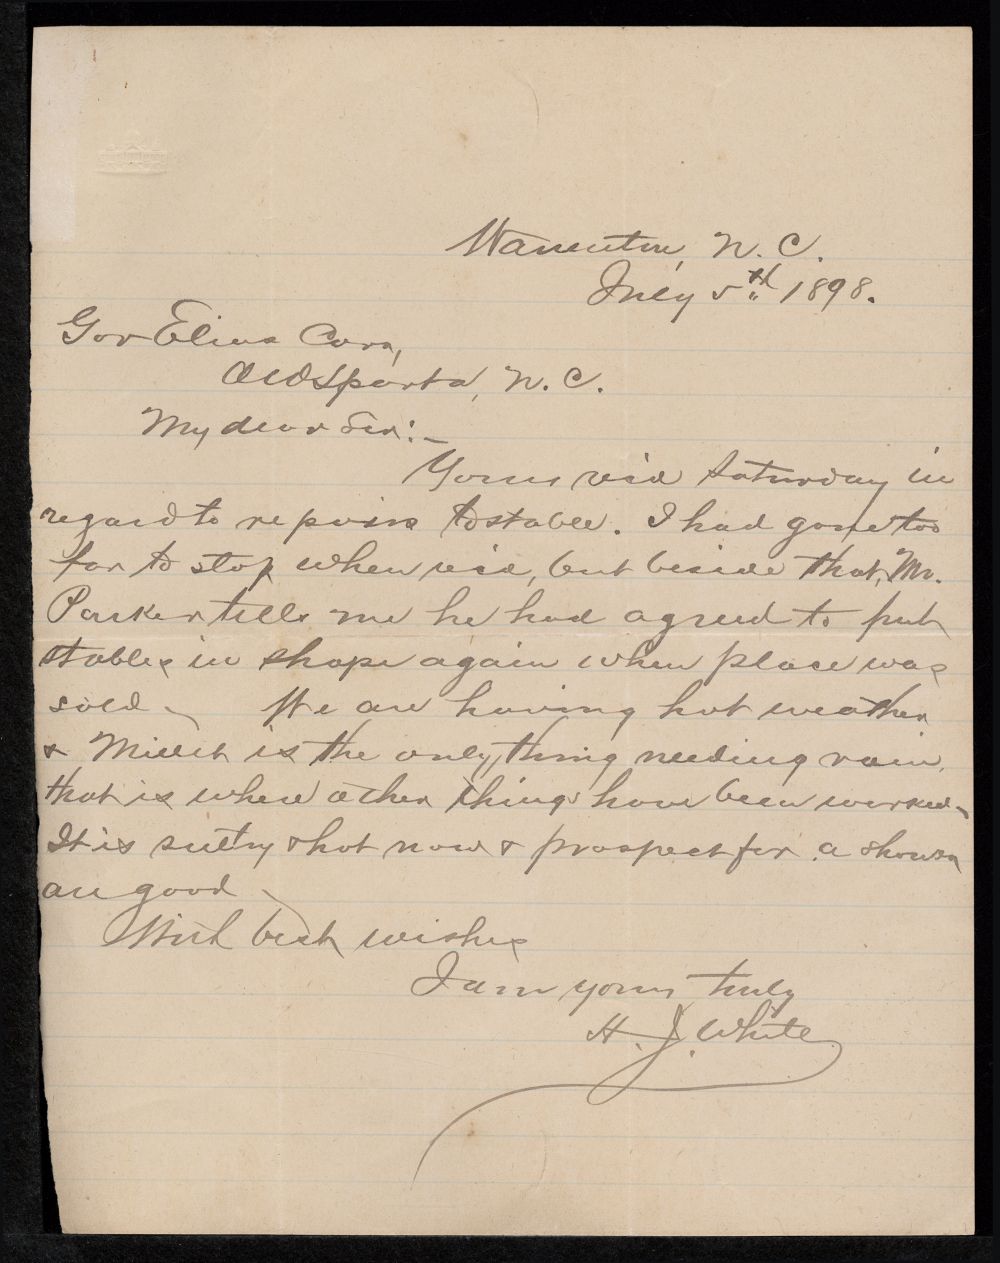 Warrenton, N. C.
July 5th 1898.
Gov Elias Carr,
Old Sparta, N. C.
My dear Sir:-
Yours rec'd Saturday in
regard to repairs to stable. I had gone too
far to stop when rec'd, but beside that, Mr.
Parker tells me he had agreed to put
stables in shape again when place was
sold. We are having hot weather
& Millet is the only thing needing rain,
that is where other things have been worked.
It is sultry & hot now & prospect for a shower
are good.
With best wishes
I am yours truly
H. J. White